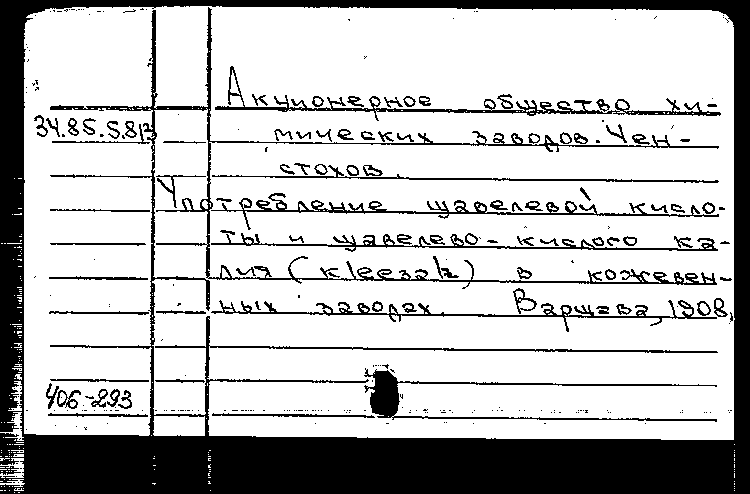 Акционерное общество хи-
34.85.5.8/3
мических заводов. Чен-
стохов.
Употребление щавелевой кисло-
ты и щавелево-кислого ка-
лия (kleesalz) в кожевен-
ных заводах. Варшава, 1908.
406-293